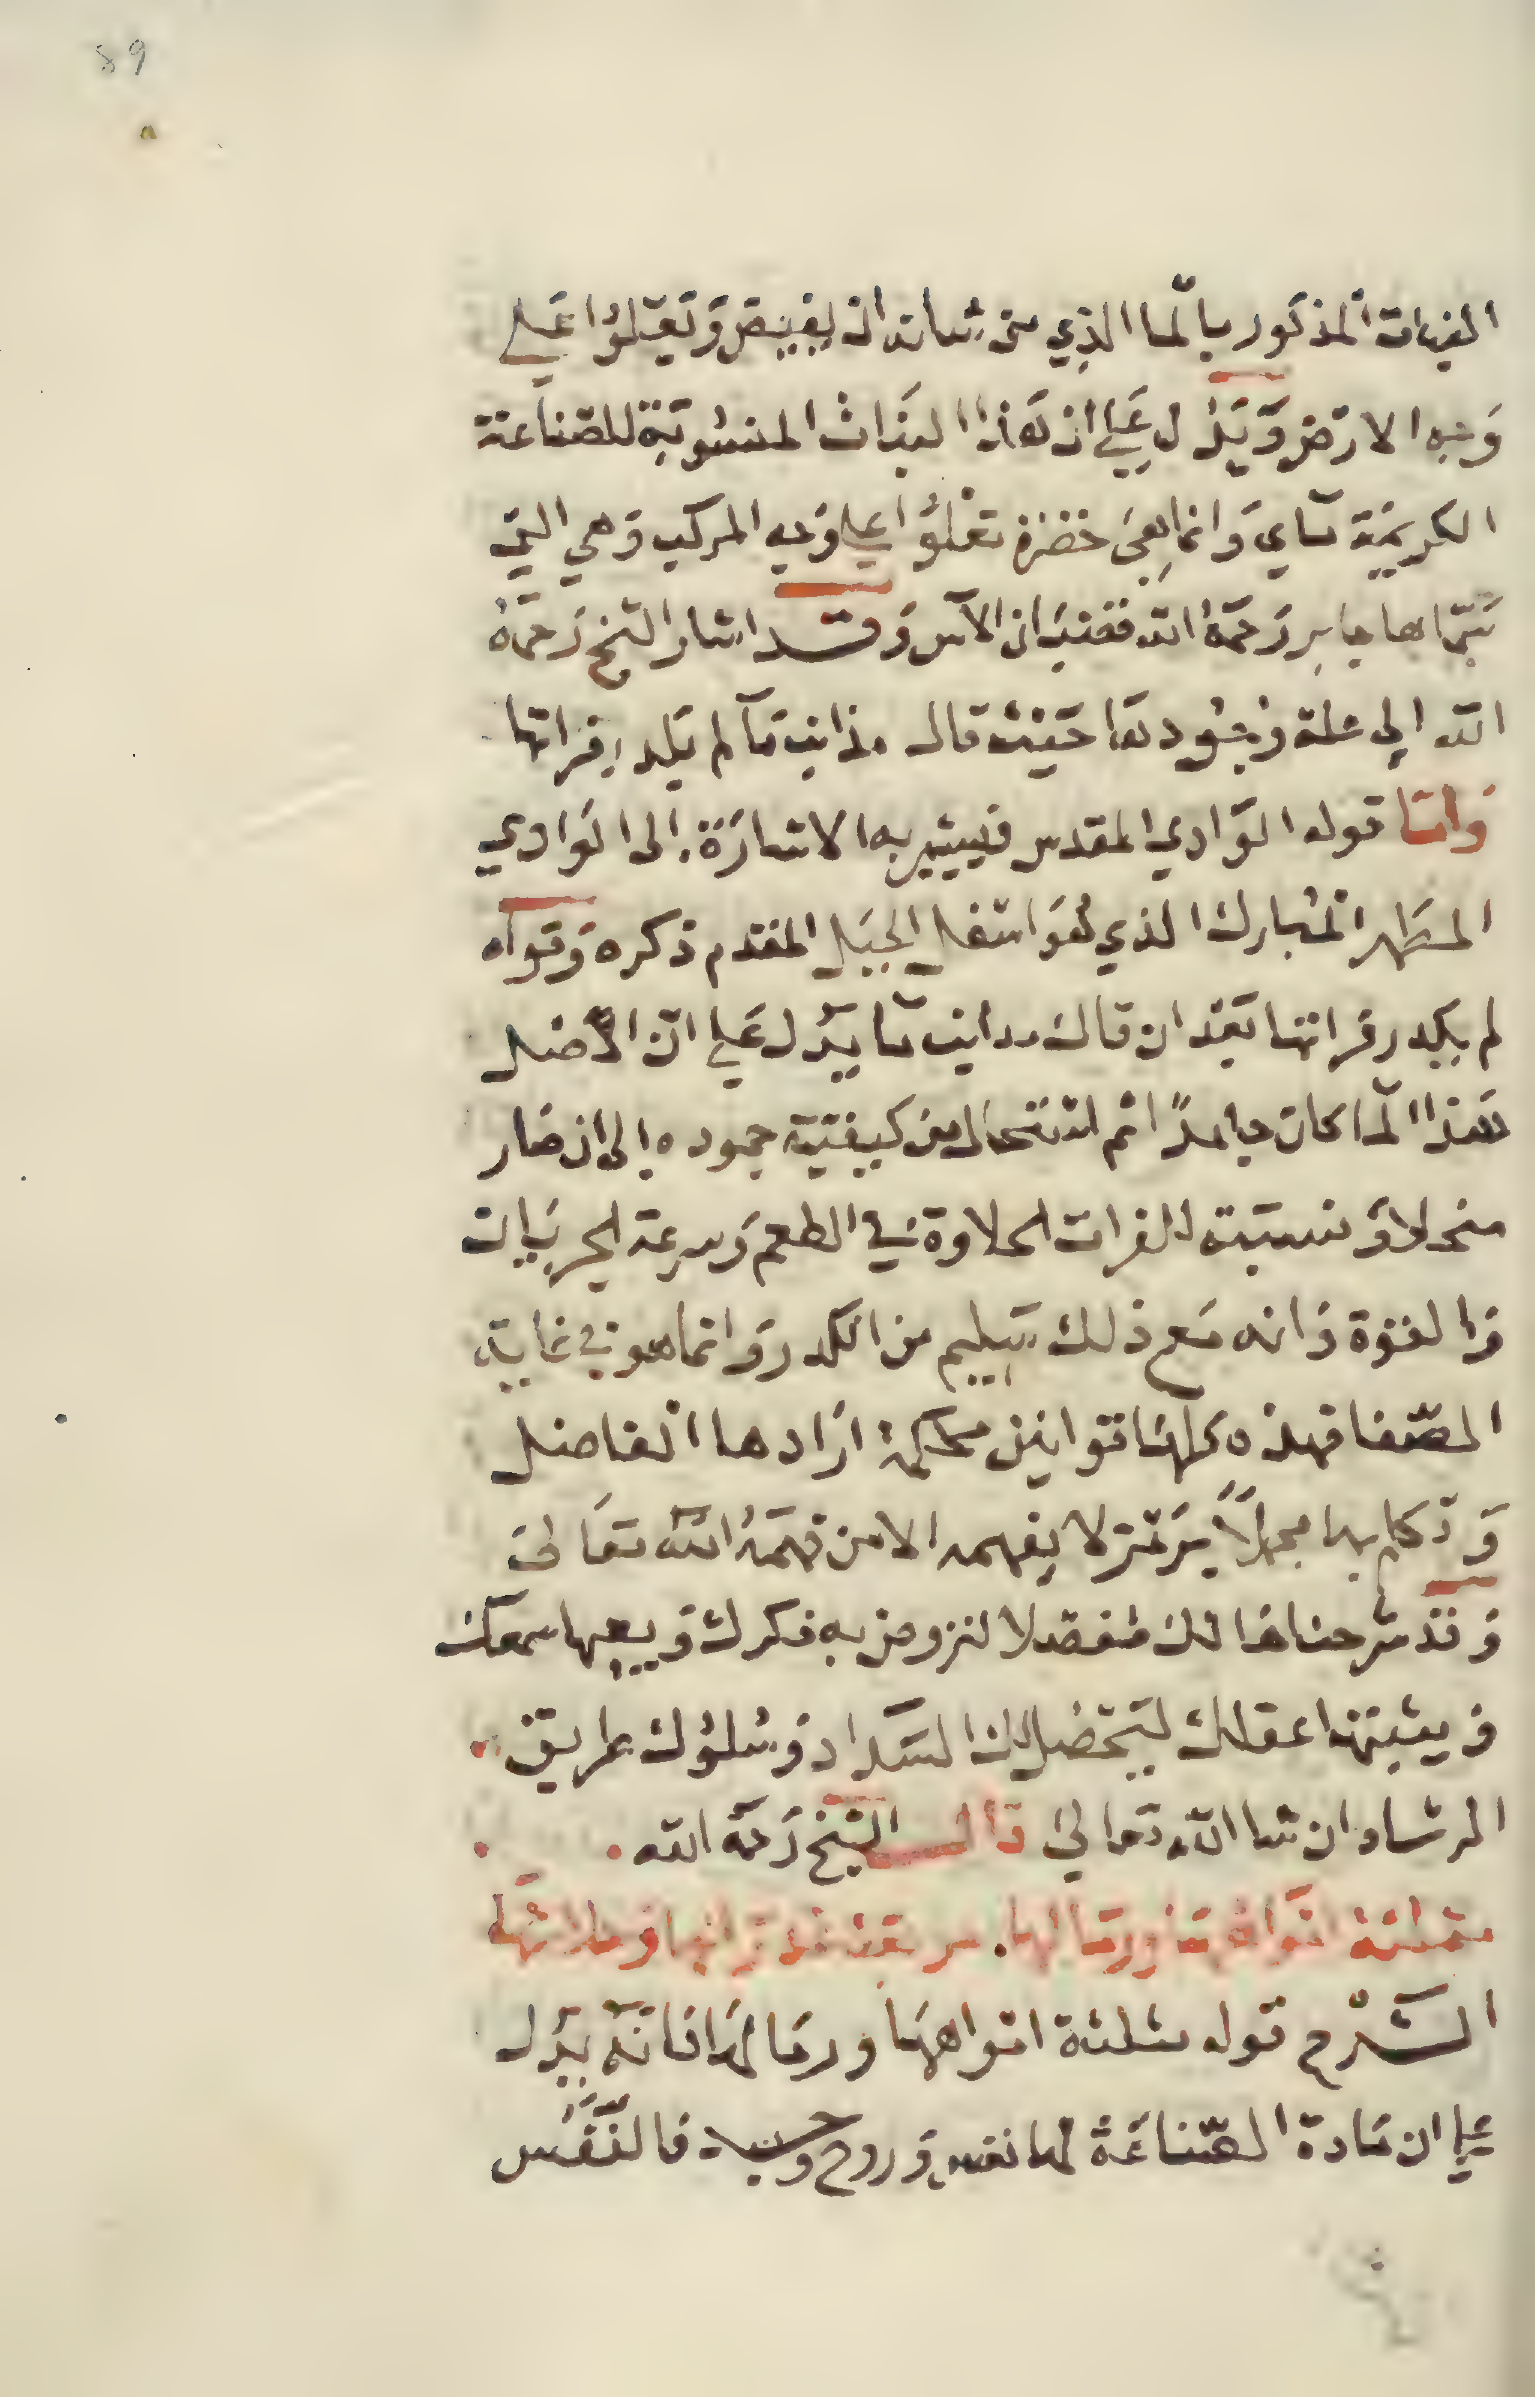 89
النبات المذكور بالما الذي من شانه ان يفيض وتعلوا على
وجه الارض ويدل على ان هذا النبات المنسوبة للصناعة
الكريمة ماي وانما هي خضرة تعلوا على وجه المركب وهي التي
سماها جابر رحمه الله قضبان الآس وقد اشار الشيخ رحمه
الله الى علة وجودها حيث قال مذانب ما لم يكدر فراتها
واما قوله الوادي المقدس فيشير به الاشارة الى الوادي
المطهر المبارك الذي هو اسفل الجبل المقدم ذكره وقوله
لم يكدر فراتها بعد ان قال مدانب ما يدل على ان الاصل
هذا الما كان جامدا ثم استحال من كيفية جموده الى ان صار
منحلا ونسبته للفرات لحلاوة في الطعم وسرعة الجريان
والقوة وانه مع ذلك سليم من الكدر وانما هو في غاية
الصفا فهذه كلها قوانين محكمة ارادها الفاضل
وتكلم بها مجملا برمز لا يفهمه الا من فهمه الله تعالى
وقد شرحناها لك مفصلا لنروض به فكرك ويعيها سمعك
ويثبتها عقلك ليتحصل لك السداد وسلوك طريق
الرشاد ان شا الله تعالى قال الشيخ رحمه الله
مثلثة افواهها ورمالها
الشرح قوله مثلثة افواهها ورمالها فانه يدل
على ان مادة الصناعة لها نفس وروح وجسد فالنفس